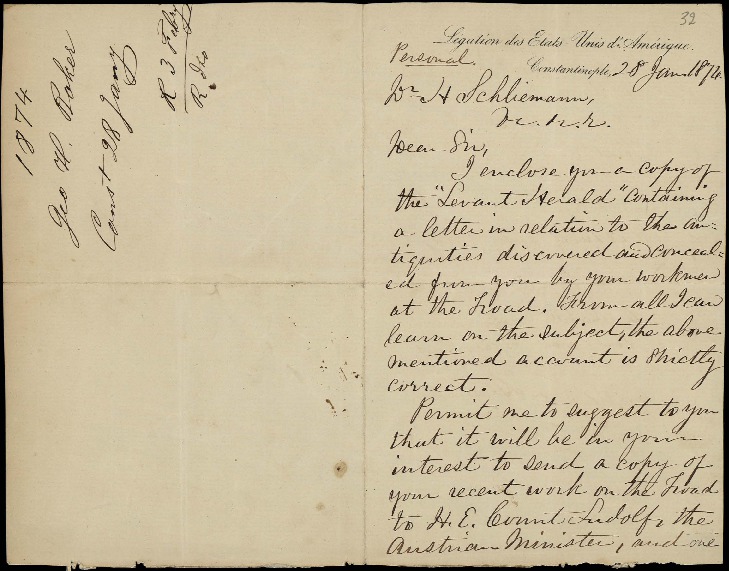 1874
Geo H. Boker
Const 28 Jany
R 3 Feby
R do
32
Légation des Etats Unis d'Amérique.
Personal.
Constantinople, 28 Jan. 1874.
Dr H Schliemann,
Dear Sir,
I enclose you a copy of
the "Levant Herald" containing
a letter in relation to the an-
tiquities discovered and conceal-
ed from you by your workmen
at the Troad. From all I can
learn on the subject, the above
mentioned account is strictly
correct.
Permit me to suggest to you
that it will be in your
interest to send a copy of
your recent work on the Troad
to H. E. Count Ludolf, the
Austrian Minister, and one